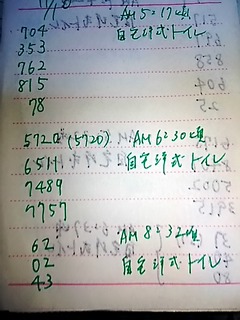 11/10
704 AM 5:17頃
353 自宅洋式トイレ
762
815
78
5720 (5720) AM 6:30頃
6511 自宅洋式トイレ
7489
7757
62 AM 8:32頃
02 自宅洋式トイレ
43